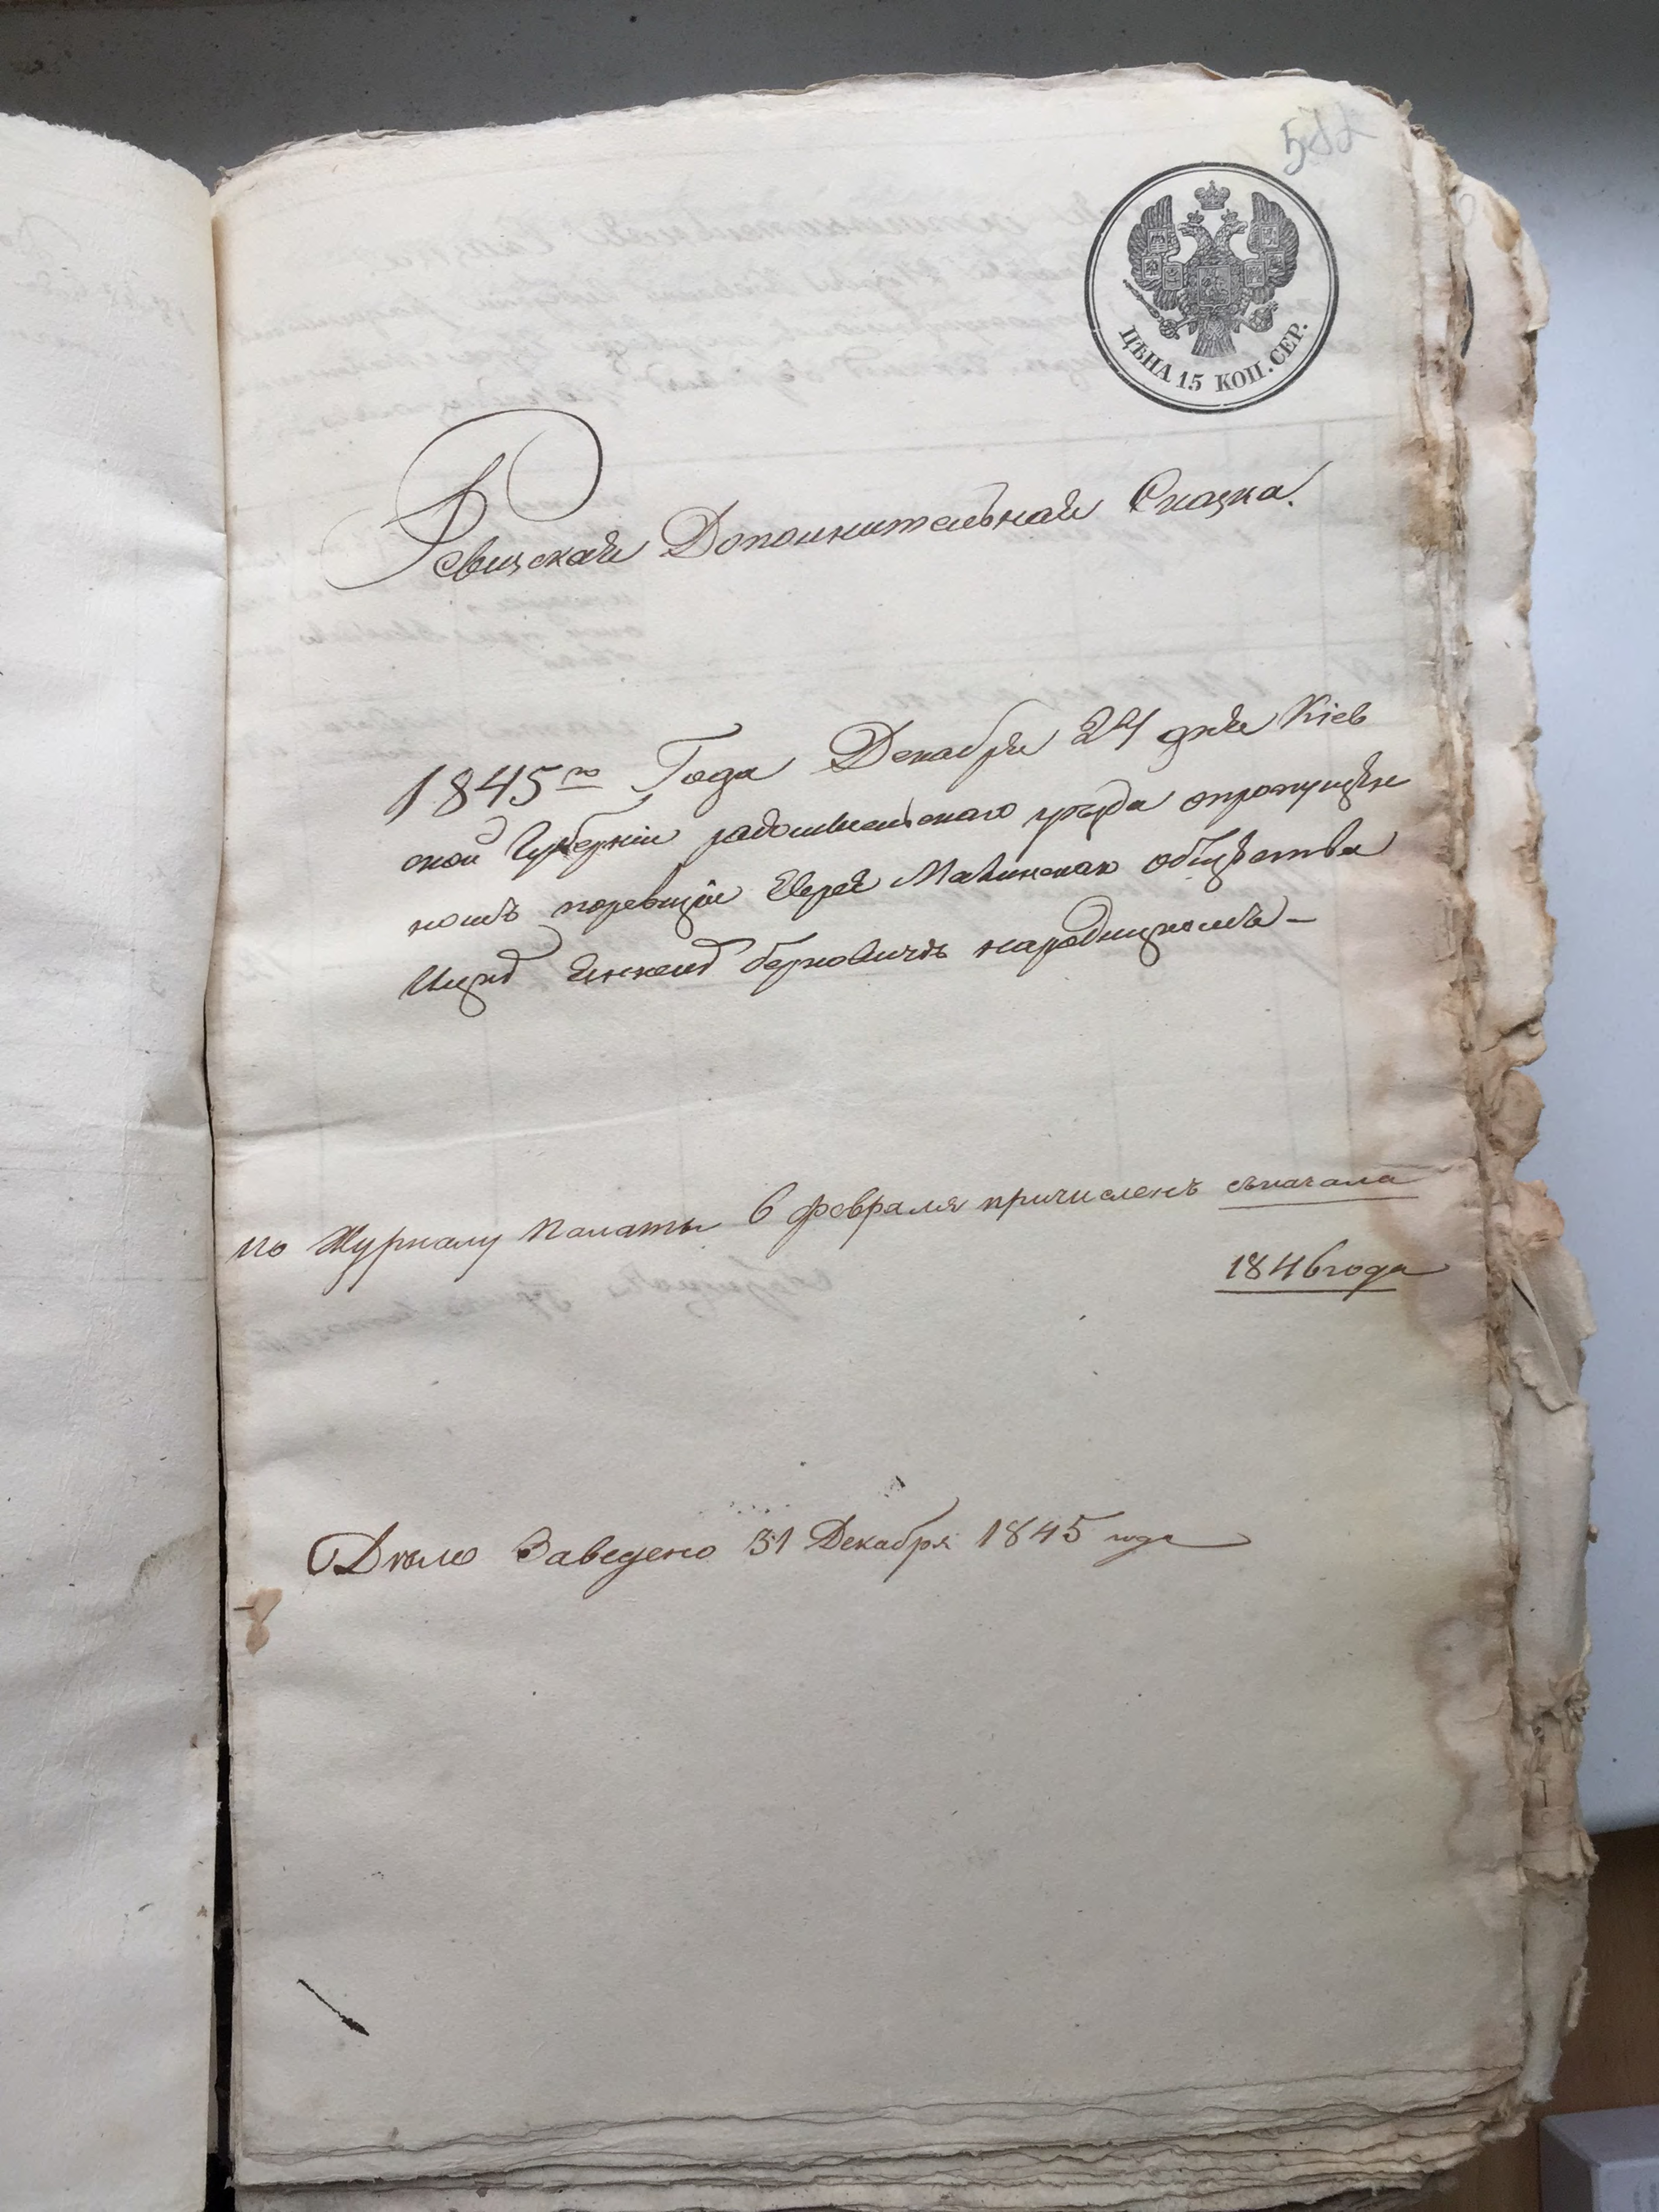 ЦѢНА 15 КОП. СЕР.
Ревизская Дополнительная Сказка.
1845го Года Декабря 24 дня Кіев
ской Губерніи радомысльскаго уѣзда о пропущен
номъ по ревизіи Еврея Малинскаго общества
Ицко Янкель берковичъ народницкомъ –
По Журналу Палаты 6 февраля причисленъ съначала
1846 года
Дѣло Заведено 31 Декабря 1845 года